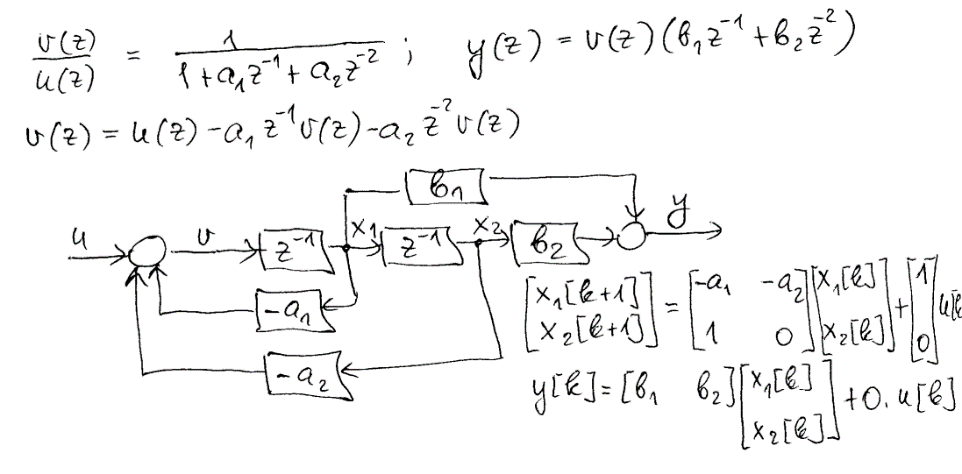 v(z)/u(z) = 1/(1+a₁z⁻¹+a₂z⁻²) ; y(z) = v(z)(b₁z⁻¹+b₂z⁻²)
v(z) = u(z) -a₁ z⁻¹v(z) -a₂ z⁻²v(z)
b₁
u v z⁻¹ x₁ z⁻¹ x₂ b₂ y
-a₁
-a₂
[x₁[k+1] x₂[k+1]] = [-a₁ -a₂ 1 0][x₁[k] x₂[k]] + [1 0] u[k
y[k] = [b₁ b₂][x₁[k] x₂[k]] + 0. u[k]